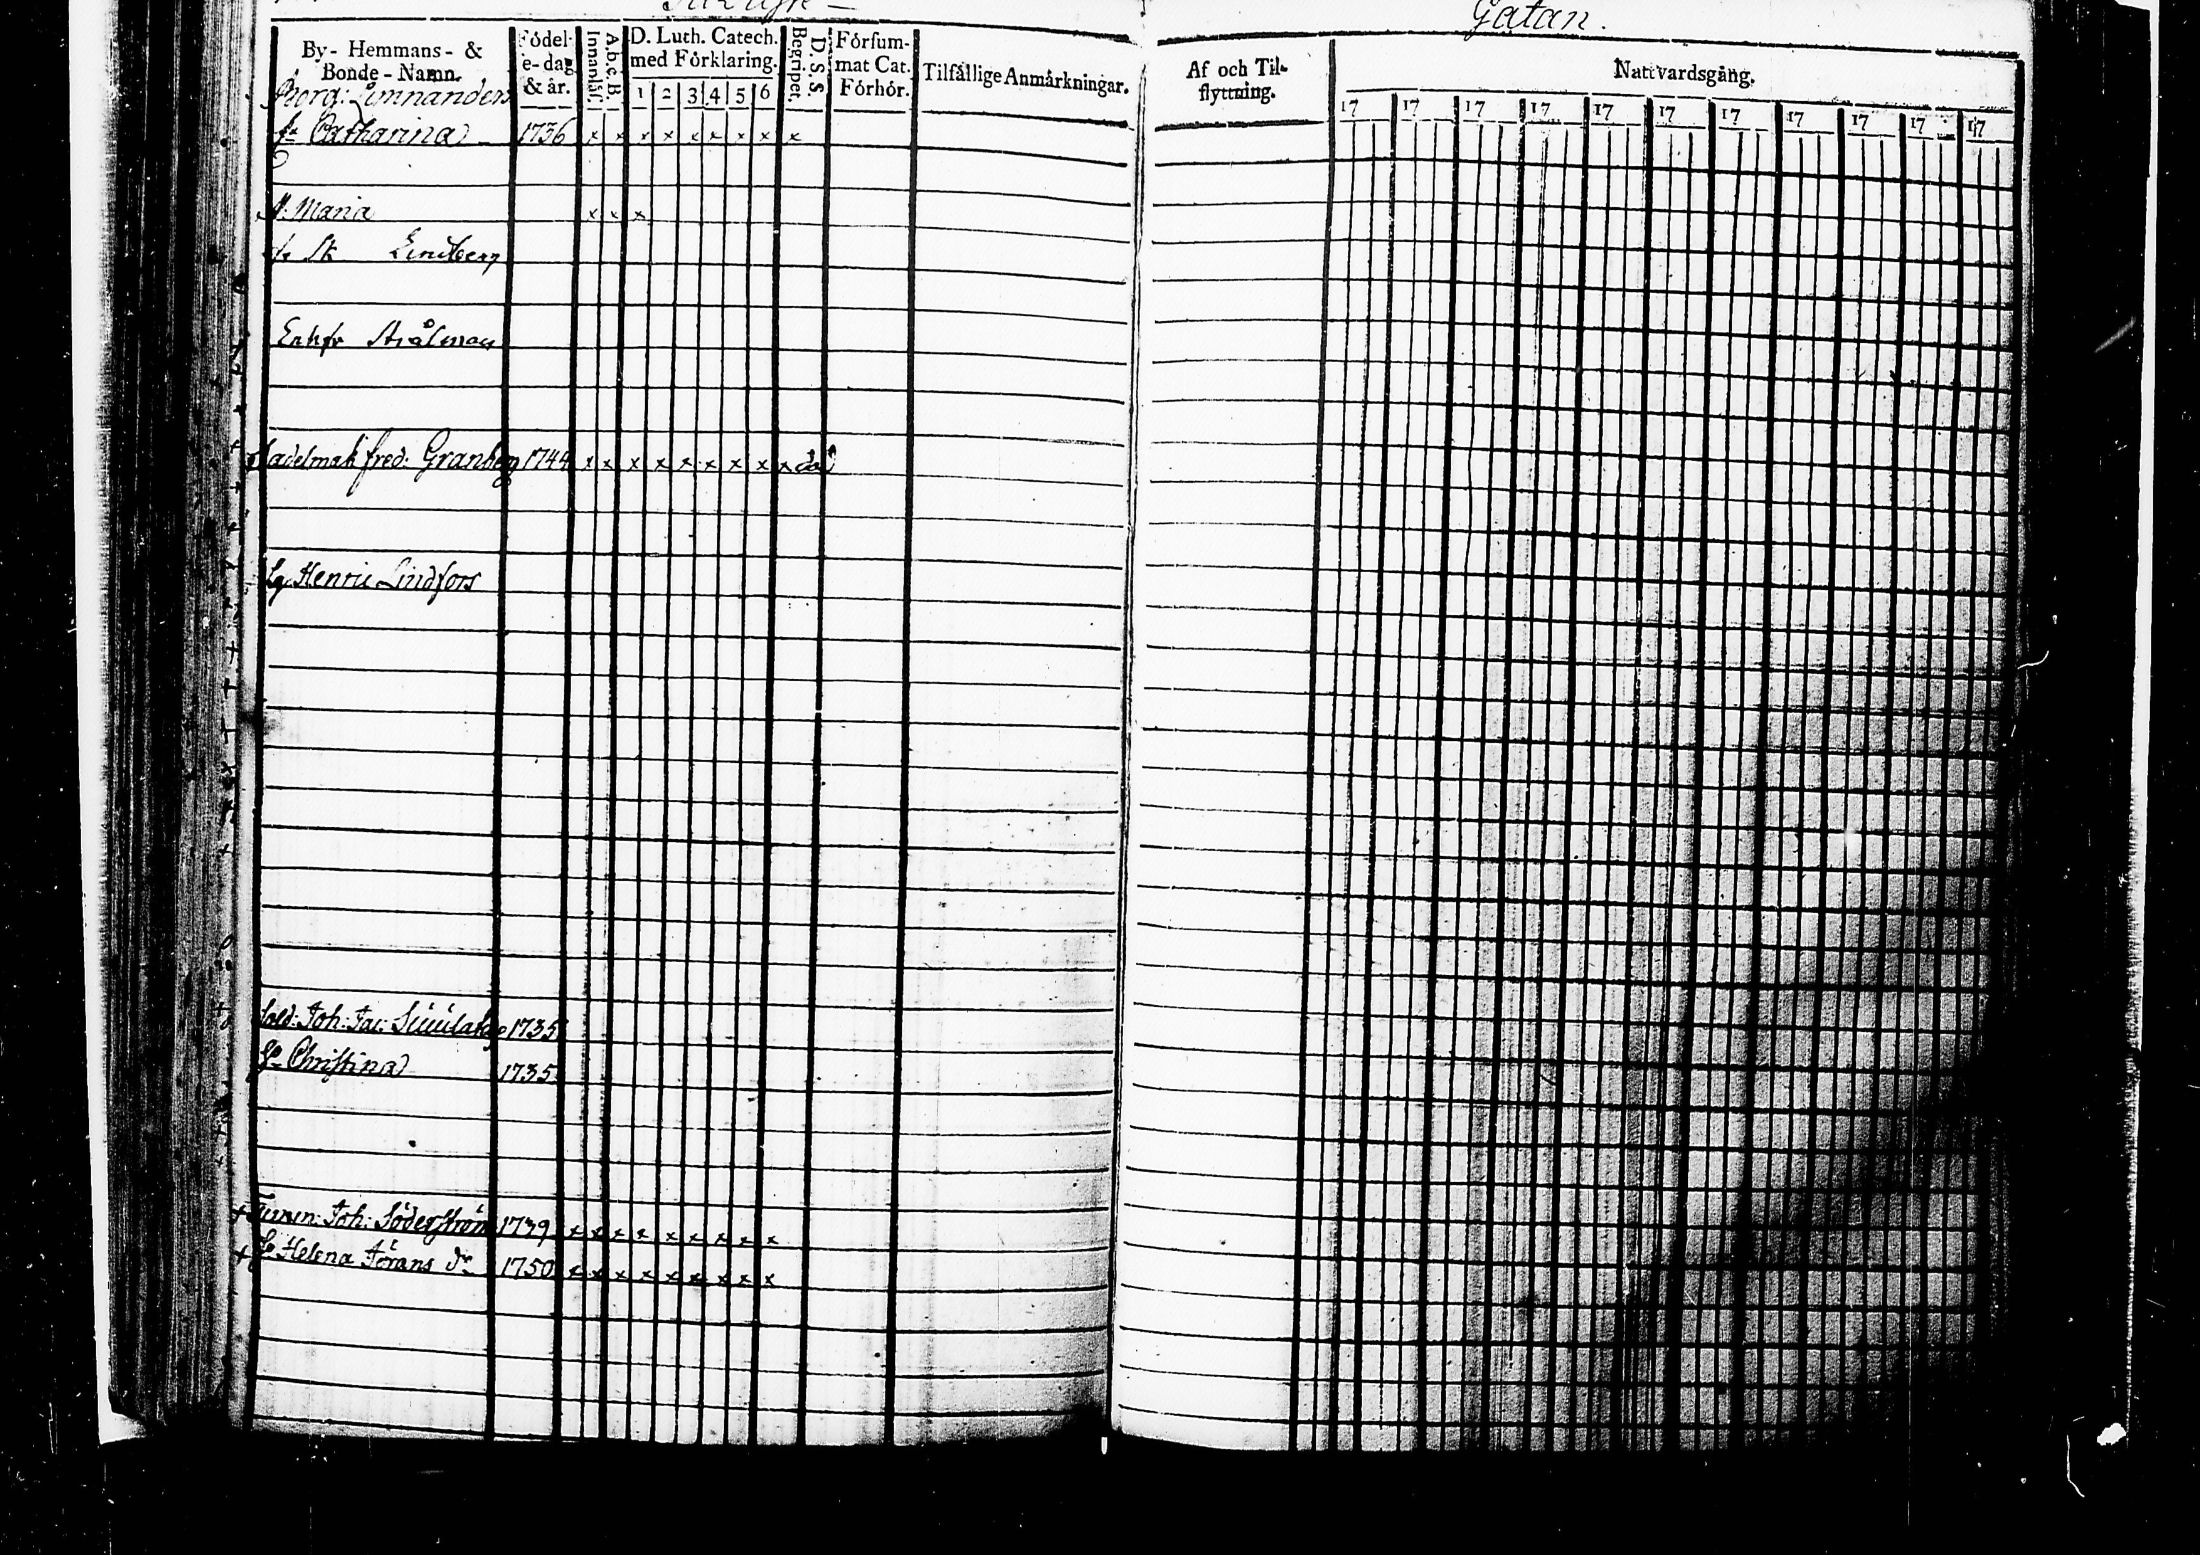 Gatan.
By- Hemmans- &
Bonde-Namn.
Födel-
se-dag
& år.
Innanläs.
A.b.c.B.
D. Luth. Catech.
med Förklaring.
1 2 3 4 5 6
Begripet.
D. S. S.
Försum-
mat Cat.
Förhör.
Tilfällige Anmärkningar.
Af och Til-
flyttning.
Nattvardsgång.
17 17 17 17 17 17 17 17 17 17 17
Borg: Limnanders
h: Catharina 1736 x x x x x x x x x
Maria x x x
Lindberg
Enkfr Strålman
Sadelmak fred: Granberg 1744 x x x x x x x x x
Henric Lindfors
Sold: Joh: Jac: 1735
h: Christina 1735
+ Timm: Joh: Söderström 1739 x x x x x x x x x
+ h: Helena Jörans dr 1750 x x x x x x x x x